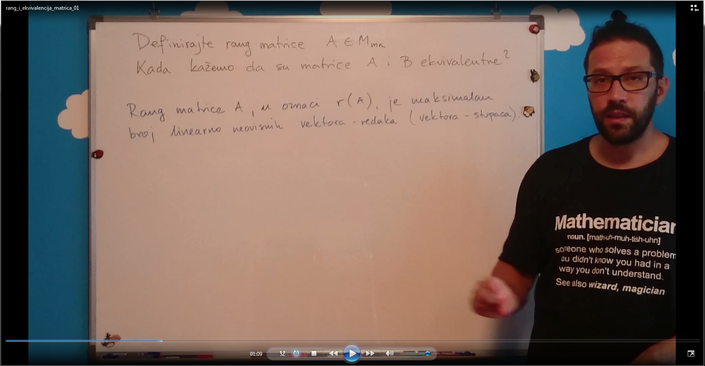 rang_i_ekvivalencija_matrica_01
Definirajte rang matrice A ∈ Mmn
Kada kažemo da su matrice A i B ekvivalentne?
Rang matrice A, u oznaci r(A), je maksimalan
broj linearno neovisnih vektora-redaka (vektora-stupaca).
Mathematician
noun. [math-uh-muh-tish-uhn]
someone who solves a problem
ou didn't know you had in a
way you don't understand.
See also wizard, magician
01:09